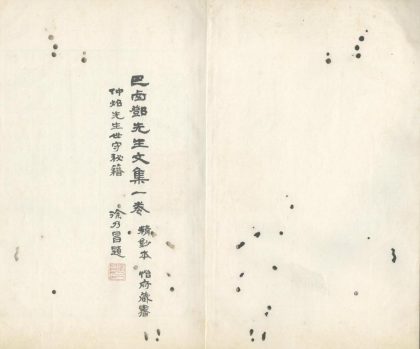 巴西鄧先生文集一卷 精鈔本 怡府藏書
仲炤先生世守秘籍
徐乃昌題